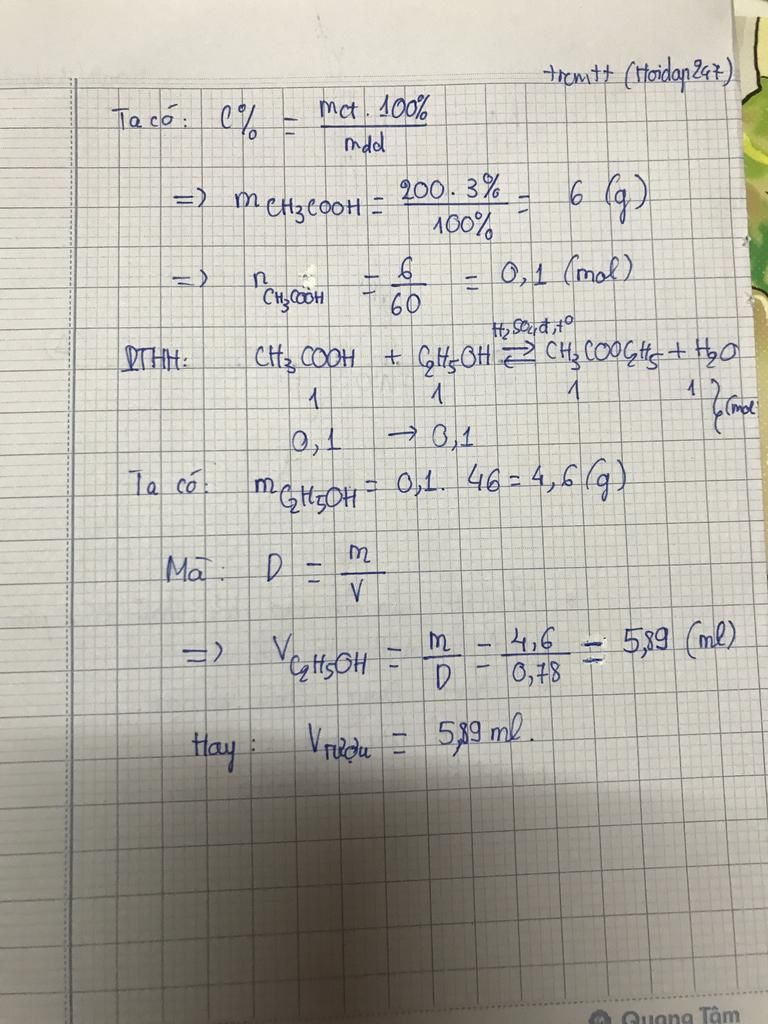 trcmtt (Hoidap247)
Ta có: C% = mct . 100% / mdd
=> m CH3COOH = 200 . 3% / 100% = 6 (g)
=> n CH3COOH = 6 / 60 = 0,1 (mol)
PTHH: CH3COOH + C2H5OH ⇌ CH3COOC2H5 + H2O
H2SO4,đ,t°
1 1 1 1 } (mol
0,1 → 0,1
Ta có: m C2H5OH = 0,1. 46 = 4,6 (g)
Mà: D = m / V
=> V C2H5OH = m / D = 4,6 / 0,78 = 5,89 (ml)
Hay: V rượu = 5,89 ml.
Quang Tâm